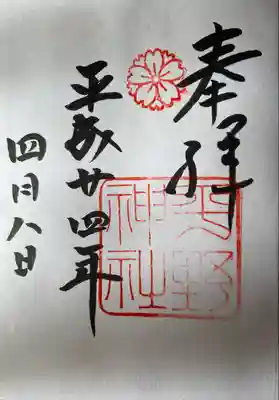 奉拝
平野神社
平成廿四年
四月八日